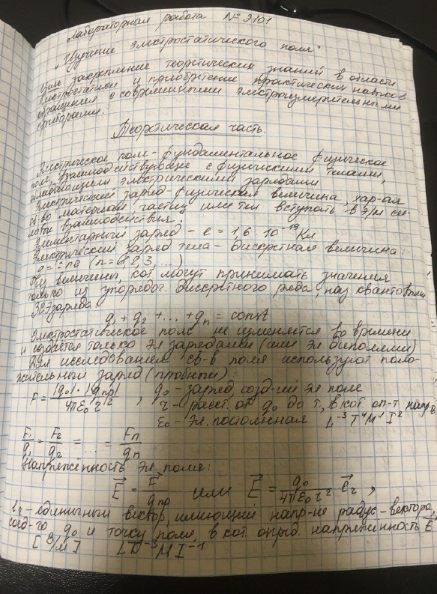 Лабораторная работа № 2101
"Изучение электростатического поля"
Цель: закрепление теоретических знаний в области
электростатики и приобретение практических навыков
обращения с современными электроизмерительными
приборами.
Теоретическая часть.
Электрическое поле - фундаментальное физическое
поле, взаимодействующее с физическими телами,
электрическими зарядами
Электрический заряд - физическая величина, хар-ая
св-во материал. частиц или тел вступать в э/м
взаимодействия.
Элементарный заряд - e = 1,6 · 10⁻¹⁹ Кл
Электрический заряд тела - дискретная величина:
(n = 1, 2, 3...)
величины, кот. могут принимать значения
только из дискретного ряда, наз.
q₁ + q₂ + ... + qₙ = const
Электростатическое поле не изменяется во времени
и создается только эл. зарядами
Для исследования св-в поля используют поло-
жительный заряд (пробный):
F = |q₀| · |qпр| / 4πε₀ r² , q₀ - заряд, созд-ий эл поле
r - расст. от q₀ до т., в кот.
ε₀ - эл. постоянная L⁻³T⁴M⁻¹I²
F₁/q₁ = F₂/q₂ = ... = Fₙ/qₙ
Напряженность эл. поля:
E⃗ = F⃗/qпр или E⃗ = q₀/4πε₀r² e⃗r ,
er - единичный вектор, имеющий напр-ие радус-вектора,
q₀ и точку поля, в кот. опред. напряженность E⃗
[В/м] LT⁻³MI⁻¹